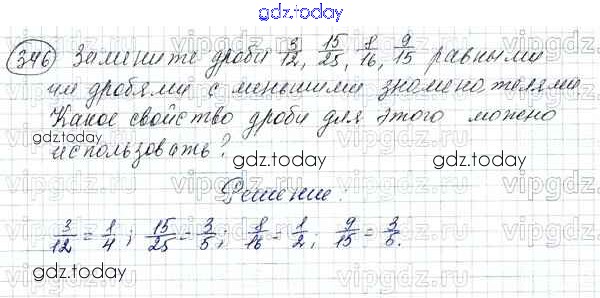 gdz.today
346 Замените дроби 3/12, 15/25, 8/16, 9/15 равными
им дробями с меньшими знаменателями
Какое свойство дроби для этого можно
использовать?
gdz.today
gdz.today
gdz.today
Решение.
3/12 = 1/4; 15/25 = 3/5; 8/16 = 1/2; 9/15 = 3/5.
gdz.today
gdz.today